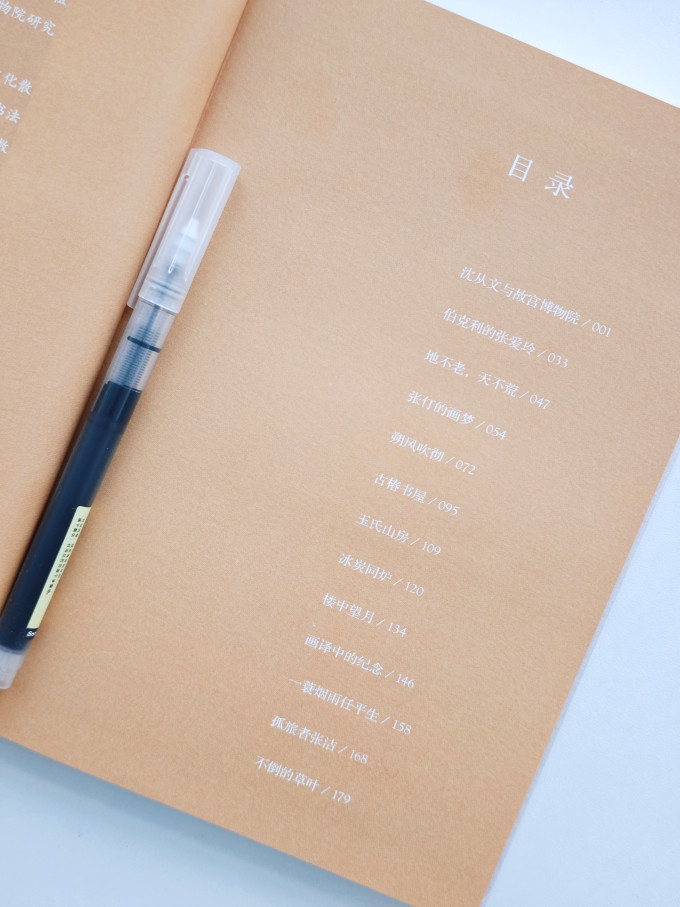 物院研究
化散
书法
散
目录
沈从文与故宫博物院 / 001
伯克利的张爱玲 / 033
地不老，天不荒 / 047
张仃的画梦 / 054
朔风吹彻 / 072
古椿书屋 / 095
玉氏山房 / 109
冰炭同炉 / 120
楼中望月 / 134
画译中的纪念 / 146
一蓑烟雨任平生 / 158
孤旅者张洁 / 168
不倒的草叶 / 179